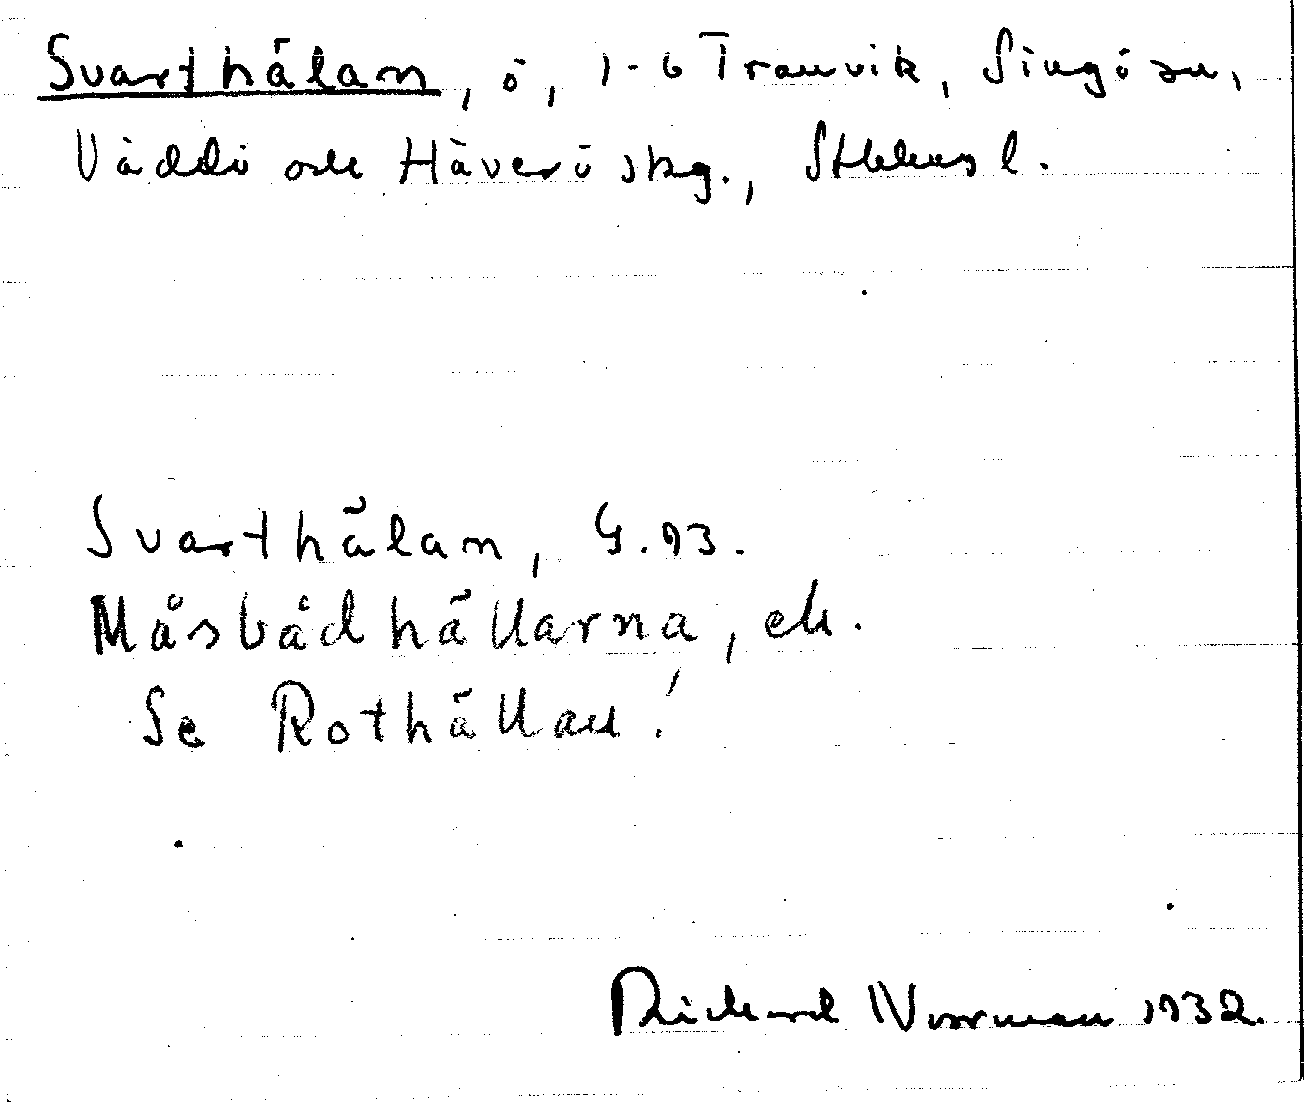 Svarthälan, ö, 1-6 Tranvik, Singö sn,
Väddö och Häverö skg., Sthlms l.
Svarthälan, G.93.
Måsbådhällarna, ek.
Se Rothällan!
Rickard Norrman 1932.